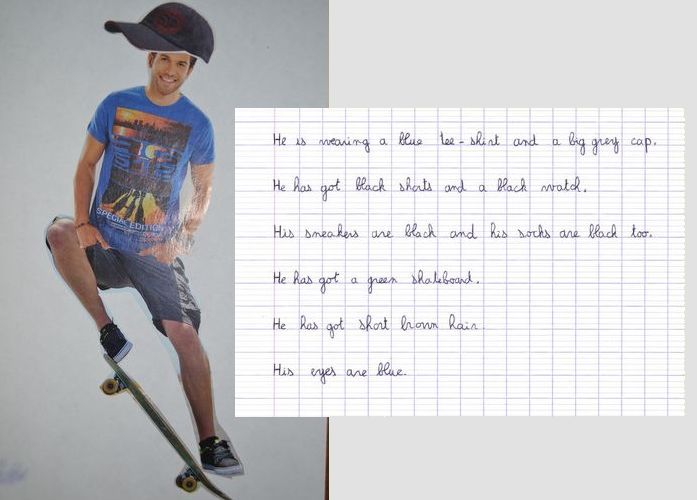 SPECIAL EDITION
He is wearing a blue tee-shirt and a big grey cap.
He has got black shorts and a black watch.
His sneakers are black and his socks are black too.
He has got a green skateboard.
He has got short brown hair.
His eyes are blue.